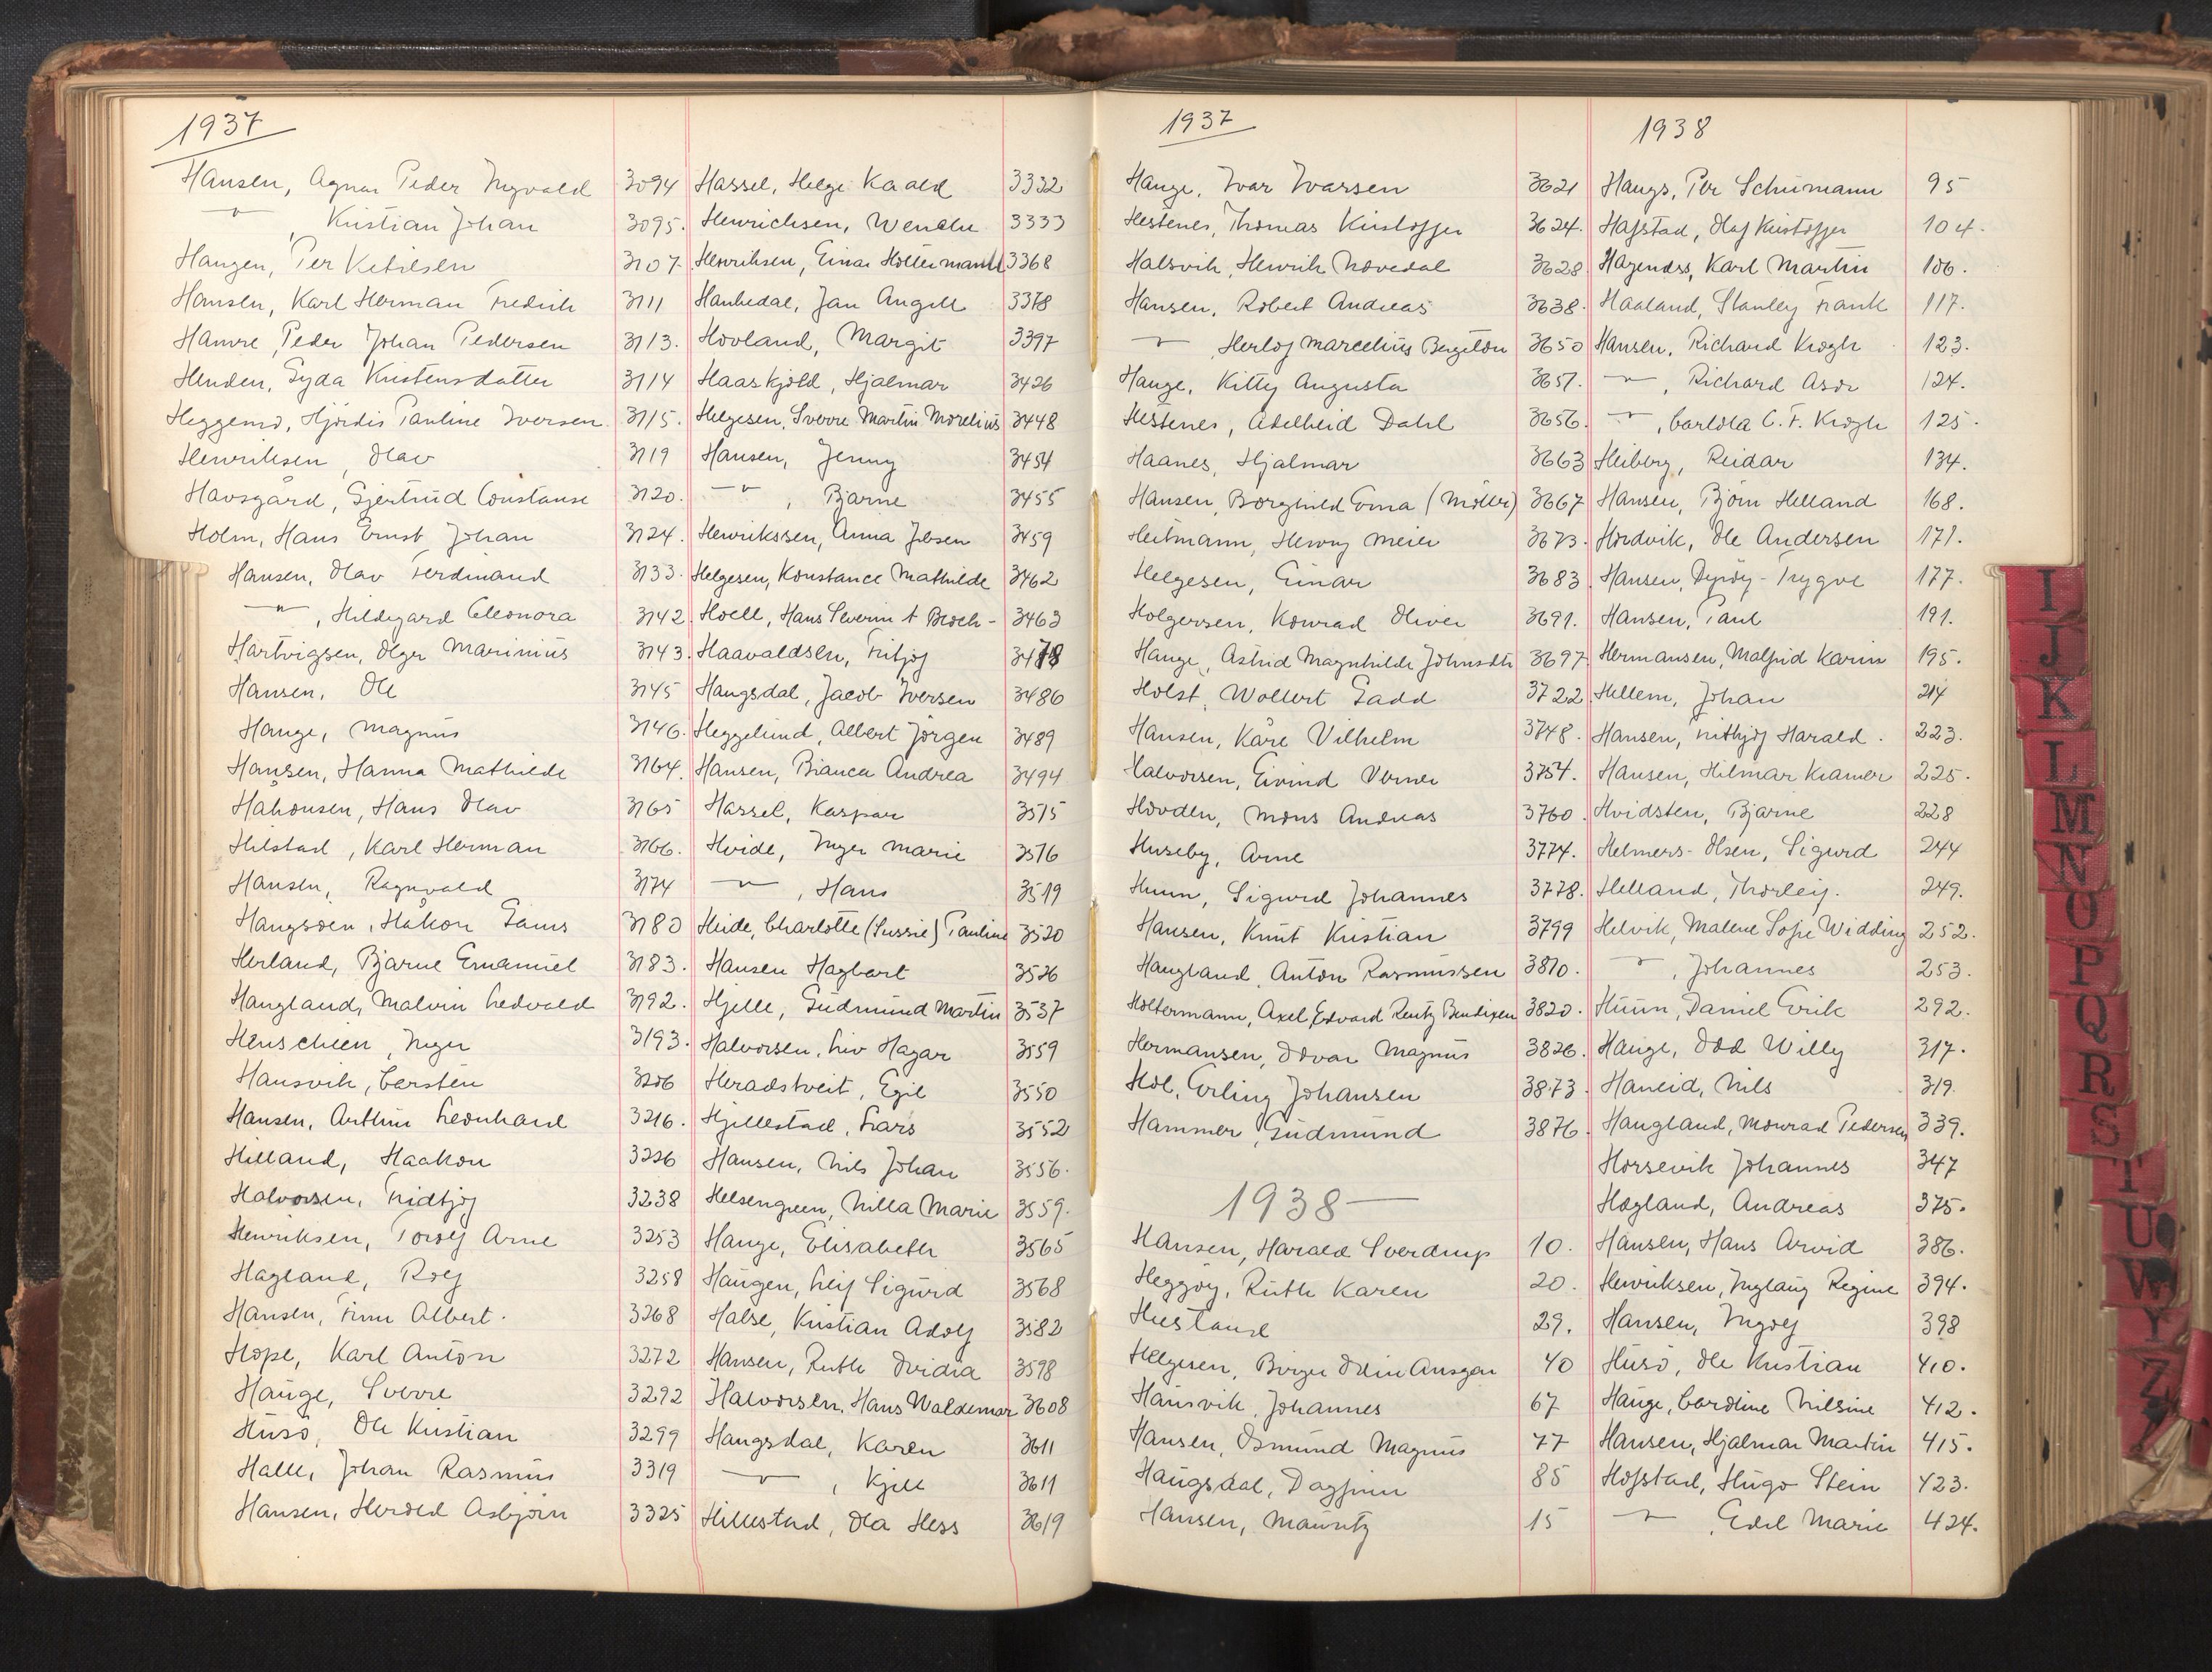 1937
Hansen, Agnar Peder Ingvald 3094
—"—, Kristian Johan 3095.
Haugen, Per Ketilsen 3107.
Hansen, Karl Herman Fredrik 3111
Hamre, Peder Johan Pedersen 3113.
Henden, Gyda Kristensdatter 3114
Heggernes, Hjördis Pauline Iversen 3115.
Henriksen, Olav 3119
Havsgård, Gjertrud Constanse 3120.
Holm, Hans Ernst Johan 3124.
Hansen, Olav Ferdinand 3133.
—"—, Hildegard Eleonora 3142.
Hartvigsen, Olger Marinius 3143.
Hansen, Ole 3145
Hauge, Magnus 3146.
Hansen, Hanna Mathilde 3164.
Håkonsen, Hans Olav 3165
Hilstad, Karl Herman 3166.
Hansen, Ragnvald 3174
Haugsøen, Håkon Gaus 3180
Herland, Bjarne Emanuel 3183.
Haugland, Malvin Ledvold 3192.
Henschien, Inger 3193.
Hausvik, Carsten 3206
Hansen, Arthur Leonhard 3216.
Hilland, Haakon 3226
Halvorsen, Fridtjof 3238
Henriksen, Torolf Arne 3253
Hagland, Rolf 3258
Hansen, Finn Albert. 3268
Hope, Karl Anton 3272
Hauge, Sverre 3292
Husö, Ole Kristian 3299
Halle, Johan Rasmus 3319
Hansen, Herold Asbjörn 3325
Hassel, Helge Kaald 3332
Henrichsen, Wenche 3333
Henriksen, Einar Holtermann 3368
Haukedal, Jan Angell 3378
Hovland, Margit 3397
Haaskjold, Hjalmar 3426
Helgesen, Sverre Martin Morelius 3448
Hansen, Jenny 3454
—"—, Bjarne 3455
Henrikssen, Anna Jbsen 3459
Helgesen, Konstance Mathilde 3462
Hoell, Hans Severin A Broch- 3463
Haavaldsen, Fritjof 3478
Haugsdal, Jacob Iversen 3486
Heggelund, Albert Jörgen 3489
Hansen, Bianca Andrea 3494
Hassel, Kaspar 3515
Hvide, Inger Marie 3516
—"—, Hans 3519
Heide, Charlotte (Sussie) Pauline 3520
Hansen Hagbart 3526
Hjelle, Gudmund Martin 3537
Halvorsen, Liv Hagar 3559
Heradstveit, Egil 3550
Hjellestad, Lars 3552
Hansen, Nils Johan 3556.
Helsengreen, Nilla Marie 3559.
Hauge, Elisabeth 3565
Haugen, Leif Sigurd 3568
Halse, Kristian Adolf 3582
Hansen, Ruth Ovidia 3598
Halvorsen, Hans Waldemar 3608
Haugsdal, Karen 3611
—"—, Kjell 3611
Hillestad, Ola Hess 3619
1937
Hauge, Ivar Ivarsen 3621
Hestenes, Thomas Kristoffer 3624.
Halsvik, Henrik Novedal 3628
Hansen, Robert Andreas 3638.
—"—, Herlof Marcelius Bergiton 3650
Hauge, Kitty Augusta 3651.
Hestenes, Adelheid Dahl 3656.
Haanes, Hjalmar 3663
Hansen, Borghild Erna (Möller) 3667
Heitmann, Henny Meier 3673.
Helgesen, Einar 3683
Holgersen, Konrad Oliver 3691.
Hauge, Astrid Magnhilde Johnsdtr 3697
Holst, Wollert Gadd 3722
Hansen, Kåre Vilhelm 3748.
Halvorsen, Eivind Verner 3754.
Hovden, Mons Andreas 3760.
Huseby, Arne 3774.
Hunn, Sigurd Johannes 3778.
Hansen, Knut Kristian 3799
Haugland, Anton Rasmussen 3810.
Holtermann, Axel Edvard Rentz Bendixen 3820.
Hermansen, Odvar Magnus 3826.
Hol, Erling Johansen 3873.
Hammer, Gudmund 3876.
1938—
Hansen, Harald Sverdrup 10.
Heggöy, Ruth Karen 20.
Hestand 29.
Helgesen, Birger Odin Ansgar 40
Hausvik, Johannes 67
Hansen, Osmund Magnus 77
Haugsdal, Dagfinn 85
Hansen, Mauritz 15
1938
Haugs, Per Schumann 95
Hafstad, Olaf Kristoffer 104.
Hagenæs, Karl Martin 106.
Haaland, Stanley Frank 117.
Hansen, Richard Krogh 123.
—"—, Richard Asor 124.
—"—, Carlota C. F. Krogh 125.
Heiberg, Reidar 134.
Hansen, Björn Helland 168.
Hordvik, Ole Andersen 171.
Hansen, Dyröy-Trygve 177.
Hansen, Paul 191.
Hermansen, Malfrid Karin 195.
Hellem, Johan 214
Hansen, Frithjof Harald. 223.
Hansen, Hilmar Kramer 225.
Hvidsten, Bjarne 228
Helmers-Olsen, Sigurd 244
Helland, Thorleif. 249.
Helvik, Malene Sofie Widding 252.
—"—, Johannes 253.
Huun, Daniel Erik 292.
Hauge, Odd Willy 317.
Haneid, Nils 319.
Haugland, Monrad Pedersen 339.
Horsevik Johannes 347
Hagland, Andreas 375.
Hansen, Hans Arvid 386.
Henriksen, Inglaug Regine 394.
Hansen, Ingolf 398
Husö, Ole Kristian 410.
Hauge, Caroline Nilsine 412.
Hansen, Hjalmar Martin 415.
Hofstad, Hugo Stein 423.
—"—, Edel Marie 424.
I
J
K
L
M
N
O
P
Q
R
S
T
U
W
Y
Z